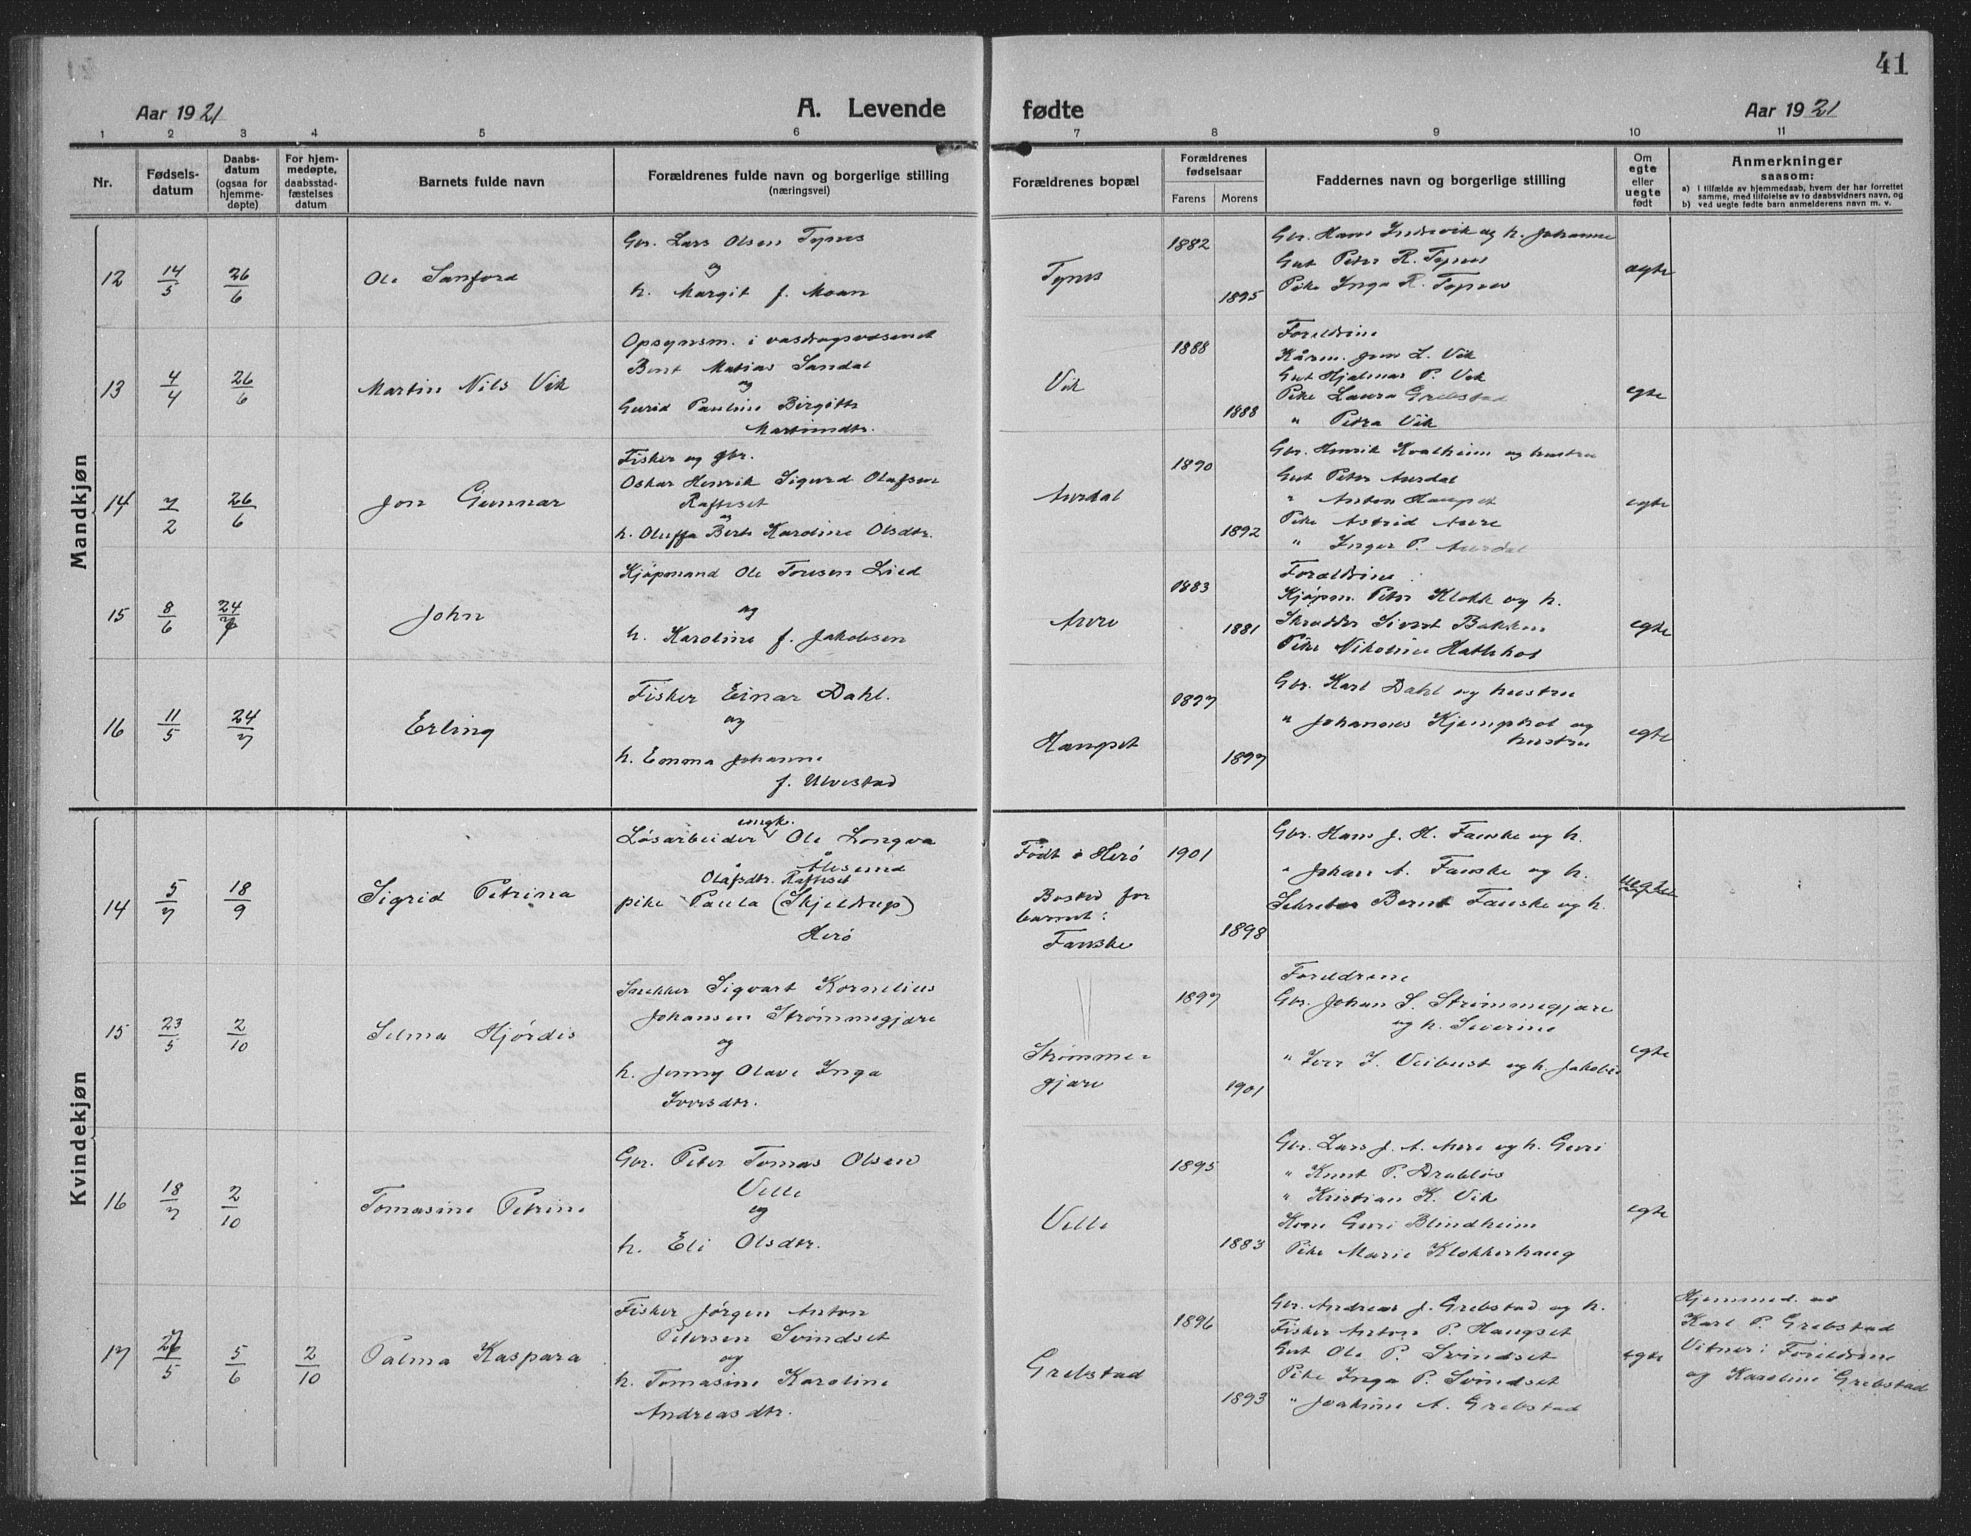 41
Aar 1921
A. Levende
fødte
Aar 1921
1 2 3 4 5 6 7 8 9 10 11
Nr.
Fødsels-
datum
Daabs-
datum
(ogsaa for
hjemme-
døpte)
For hjem-
medøpte,
daabsstad-
fæstelses
datum
Barnets fulde navn
Forældrenes fulde navn og borgerlige stilling
(næringsvei)
Forældrenes bopæl
Forældrenes
fødselsaar
Farens
Morens
Faddernes navn og borgerlige stilling
Om
egte
eller
uegte
født
Anmerkninger
saasom:
a) I tilfælde av hjemmedaab, hvem der har forrettet
samme, med tilføielse av to daabsvidners navn, og
b) ved uegte fødte barn anmelderens navn m. v.
Mandkjøn
12
14/5
26/6
Ole Sanford
Gbr. Lars Olsen Tynes
og
h. Margit f. Moan
Tynes
1882
1895
Gbr. Hans Indrevik og h. Johanne
Gut Peter R. Tynes
Pike Inga R. Tynes
ægte
13
4/4
26/6
Martin Nils Vik
Opsynsm. i vasdragsvæsenet
Bernt Matias Sandal
og
Gurid Pauline Birgitte
Martinsdtr.
Vik
1888
1888
Foreldrene
Kårm. Jon L. Vik
Gut Hjalmar P. Vik
Pike Laura Grebstad
" Petra Vik
egte
14
7/2
26/6
Jon Gunnar
Fisker og gbr.
Oskar Henrik Sigurd Olafsen
Rafteset
og
h. Oluffa Berte Karoline Olsdtr.
Aurdal
1890
1892
Gbr. Henrik Kvalheim og hustru
Gut Peter Aurdal
" Anton Haugset
Pike Astrid Aure
" Inger P. Aurdal
egte
15
8/6
24/7
John
Kjøpmand Ole Toresen Lied
og
h. Karoline f. Jakobsen
Aure
1883
1881
Forældrene
Kjøpm. Peter Klokk og h.
Skrædder Sivert Bakken
Pike Nikoline Hatlehol
egte
16
11/5
24/7
Erling
Fisker Einar Dahl.
og
h. Emma Johanne
f. Ulvestad
Haugset
1897
1897
Gbr. Karl Dahl og hustru
" Johannes Kjemphol og
hustru
egte
Kvindekjøn
14
5/7
18/9
Sigrid Petrina
ungk.
Løsarbeider Ole Longva
Ålesund
Olafsdtr. Rafteset
pike Paula (Skjeldrup)
Herø
Født i Herø
Bosted for
barnet:
Fauske
1901
1898
Gbr. Hans J. H. Fauske og h.
" Johan A. Fauske og h.
Bernt Fauske og h.
uegte
15
23/5
2/10
Selma Hjørdis
Snekker Sigvart Kornelius
Johansen Strømmegjære
og
h. Jenny Olave Inga
Iversdtr.
Strømme-
gjære
1897
1901
Foreldrene
Gbr. Johan S. Strømmegjære
og h. Severine
" Iver I. Veibust og h. Jakobine
egte
16
18/7
2/10
Tomasine Petrine
Gbr. Peter Tomas Olsen
Velle
og
h. Eli Olsdtr.
Velle
1895
1883
Gbr. Lars J. A. Aure og h. Guri
" Knut P. Drabløs
" Kristian K. Vik
Kone Guri Blindheim
Pike Marie Klokkerhaug
egte
17
27/5
5/6
2/10
Palma Kaspara
Fisker Jørgen Anton
Petersen Svindset
og
h. Tomasine Karoline
Andreasdtr.
Grebstad
1896
1893
Gbr. Andreas J. Grebstad og h.
Fisker Anton P. Haugset
Gut Ole P. Svindset
Pike Inga P. Svindset
" Joakime A. Grebstad
egte
Hjemmed. av
Karl P. Grebstad
Vitner: Foreldrene
og Karoline Grebstad